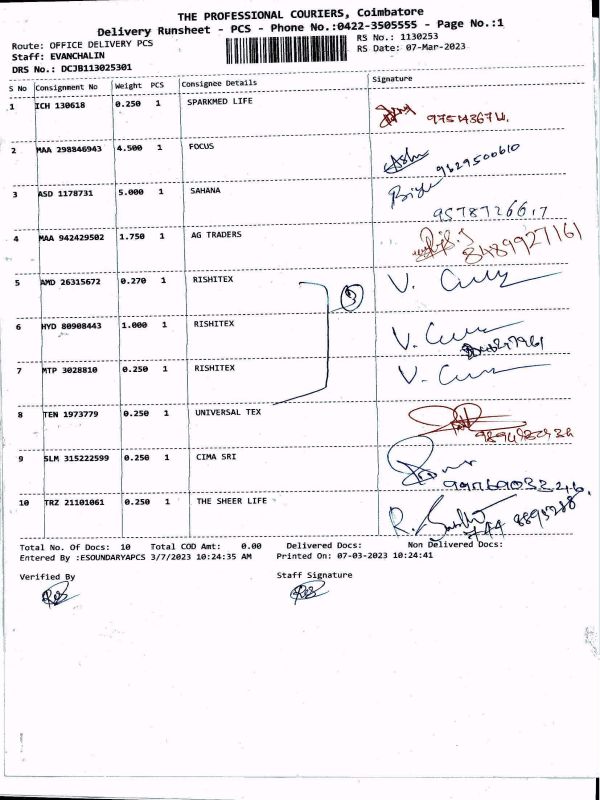 THE PROFESSIONAL COURIERS, Coimbatore
Delivery Runsheet - PCS - Phone No.:0422-3505555 - Page No.:1
Route: OFFICE DELIVERY PCS
RS No.: 1130253
Staff: EVANCHALIN
RS Date: 07-Mar-2023
DRS No.: DCJB113025301
S No Consignment No Weight PCS Consignee Details Signature
1 ICH 130618 0.250 1 SPARKMED LIFE
2 MAA 298846943 4.500 1 FOCUS 9629500610
3 ASD 1178731 5.000 1 SAHANA
4 MAA 942429502 1.750 1 AG TRADERS 8489927161
5 AMD 26315672 0.270 1 RISHITEX
3
6 HYD 80908443 1.000 1 RISHITEX
7 MTP 3028810 0.250 1 RISHITEX
8 TEN 1973779 0.250 1 UNIVERSAL TEX
9 SLM 315222599 0.250 1 CIMA SRI
10 TRZ 21101061 0.250 1 THE SHEER LIFE
Total No. Of Docs: 10 Total COD Amt: 0.00 Delivered Docs: Non Delivered Docs:
Entered By :ESOUNDARYAPCS 3/7/2023 10:24:35 AM Printed On: 07-03-2023 10:24:41
Verified By Staff Signature